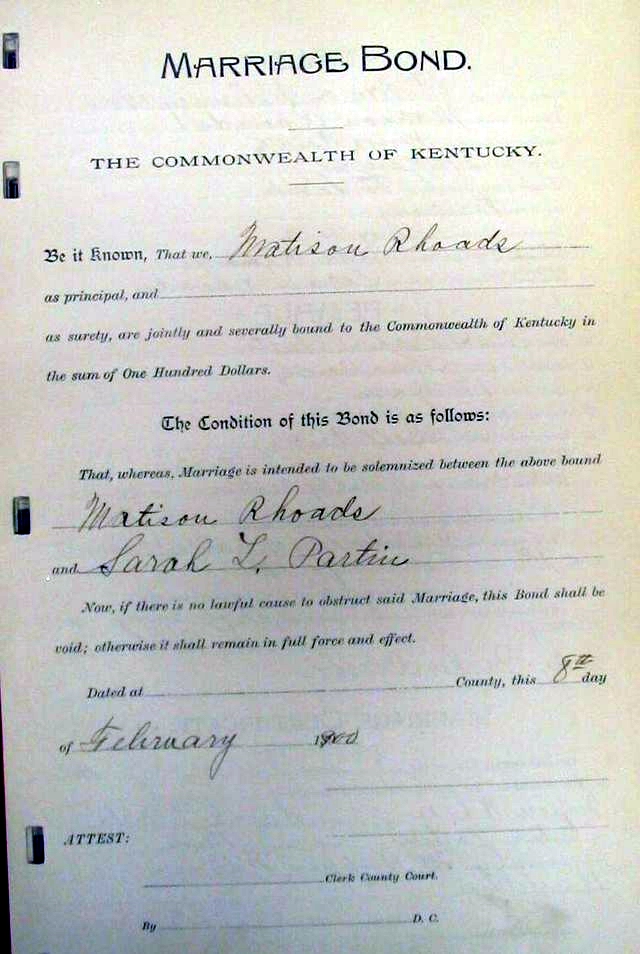 MARRIAGE BOND.
THE COMMONWEALTH OF KENTUCKY.
Be it Known, That we, Matison Rhoads
as principal, and
as surety, are jointly and severally bound to the Commonwealth of Kentucky in
the sum of One Hundred Dollars.
The Condition of this Bond is as follows:
That, whereas, Marriage is intended to be solemnized between the above bound
Matison Rhoads
and Sarah L. Partin
Now, if there is no lawful cause to obstruct said Marriage, this Bond shall be
void; otherwise it shall remain in full force and effect.
Dated at County, this 8th day
of February 1900
ATTEST:
Clerk County Court.
By D. C.